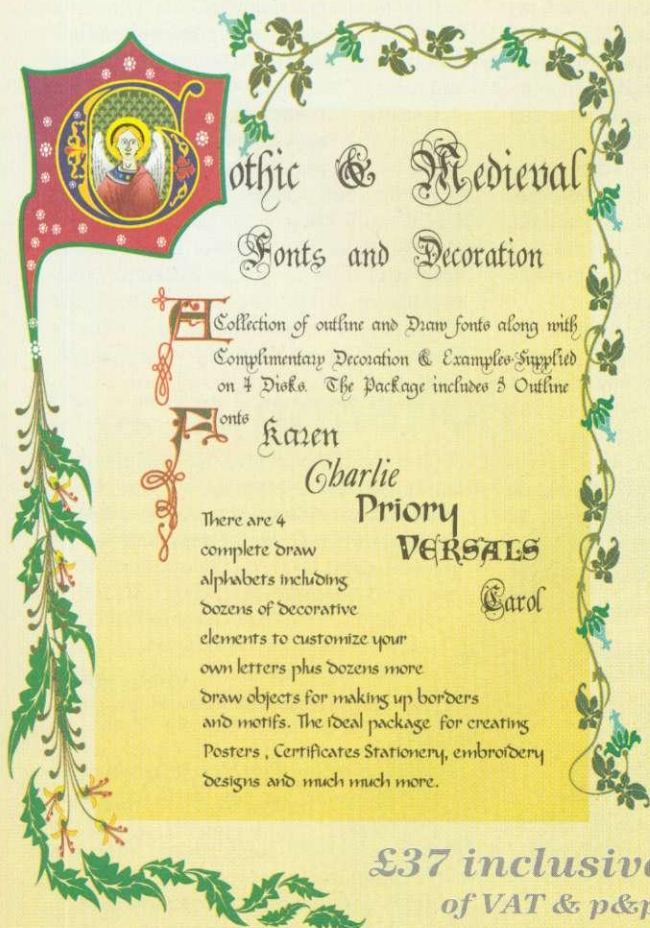 Gothic & Medieval
Fonts and Decoration
A Collection of outline and Draw fonts along with
Complimentary Decoration & Examples Supplied
on 4 Disks. The Package includes 5 Outline
Fonts
Karen
Charlie
Priory
VERSALS
Carol
There are 4
complete draw
alphabets including
dozens of decorative
elements to customize your
own letters plus dozens more
draw objects for making up borders
and motifs. The ideal package for creating
Posters , Certificates Stationery, embroidery
designs and much much more.
£37 inclusive
of VAT & p&p